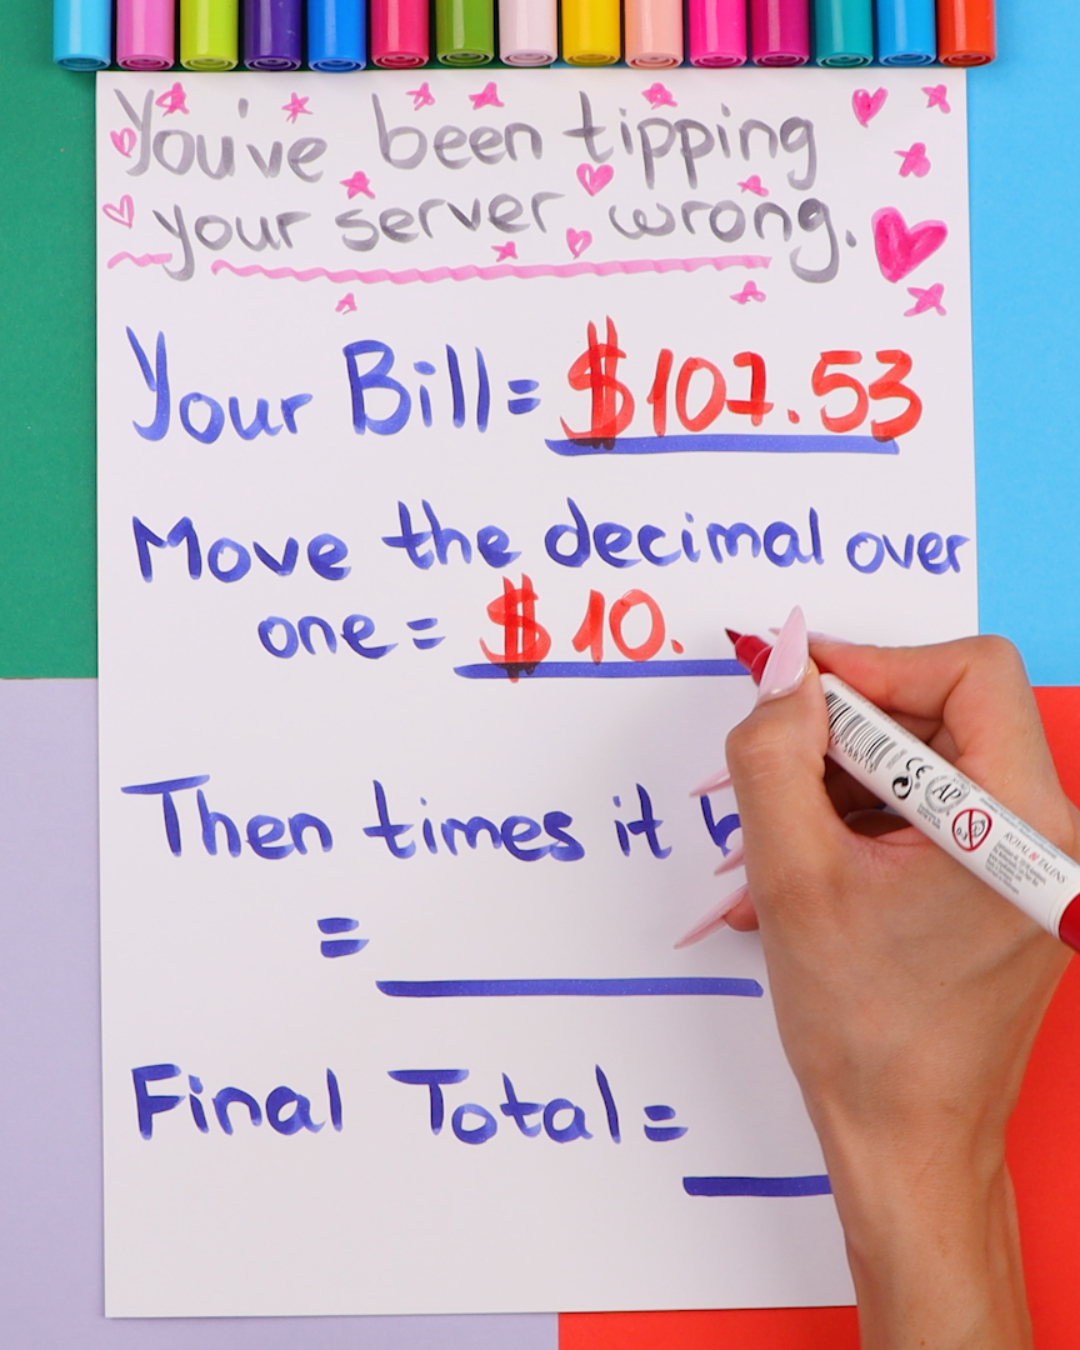 You've been tipping
your server wrong.
Your Bill = $107.53
Move the decimal over
one = $10.
Then times it
=
Final Total =
CE
AP
0-3
ROYAL TALENS